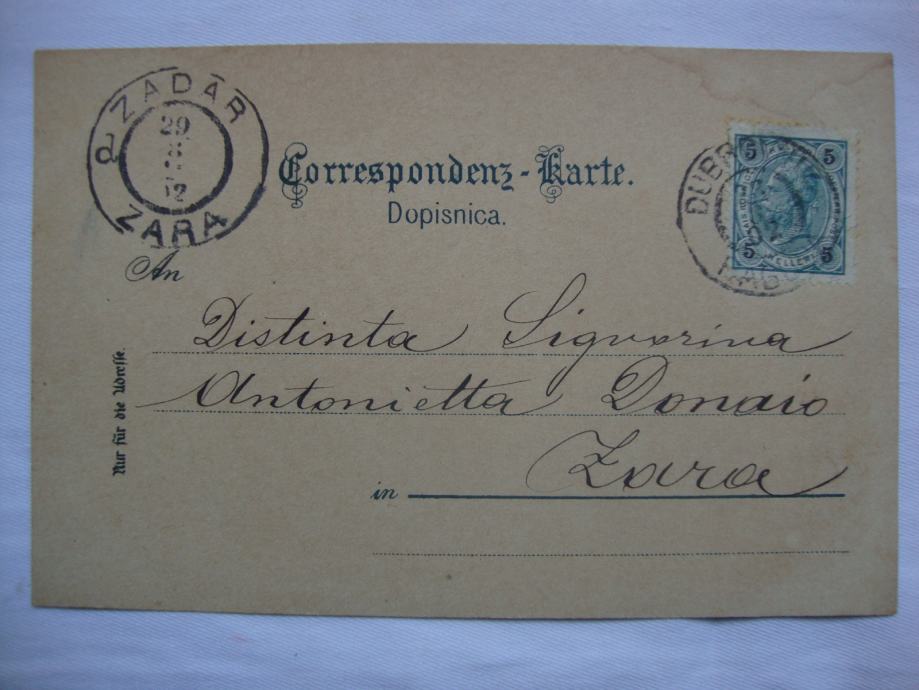 ZADAR
29
12
ZARA
Correspondenz-Karte.
Dopisnica.
5 5
5 5
An
Distinta Signorina
Antonietta Donaio
in Zara
Nur für die Adresse.